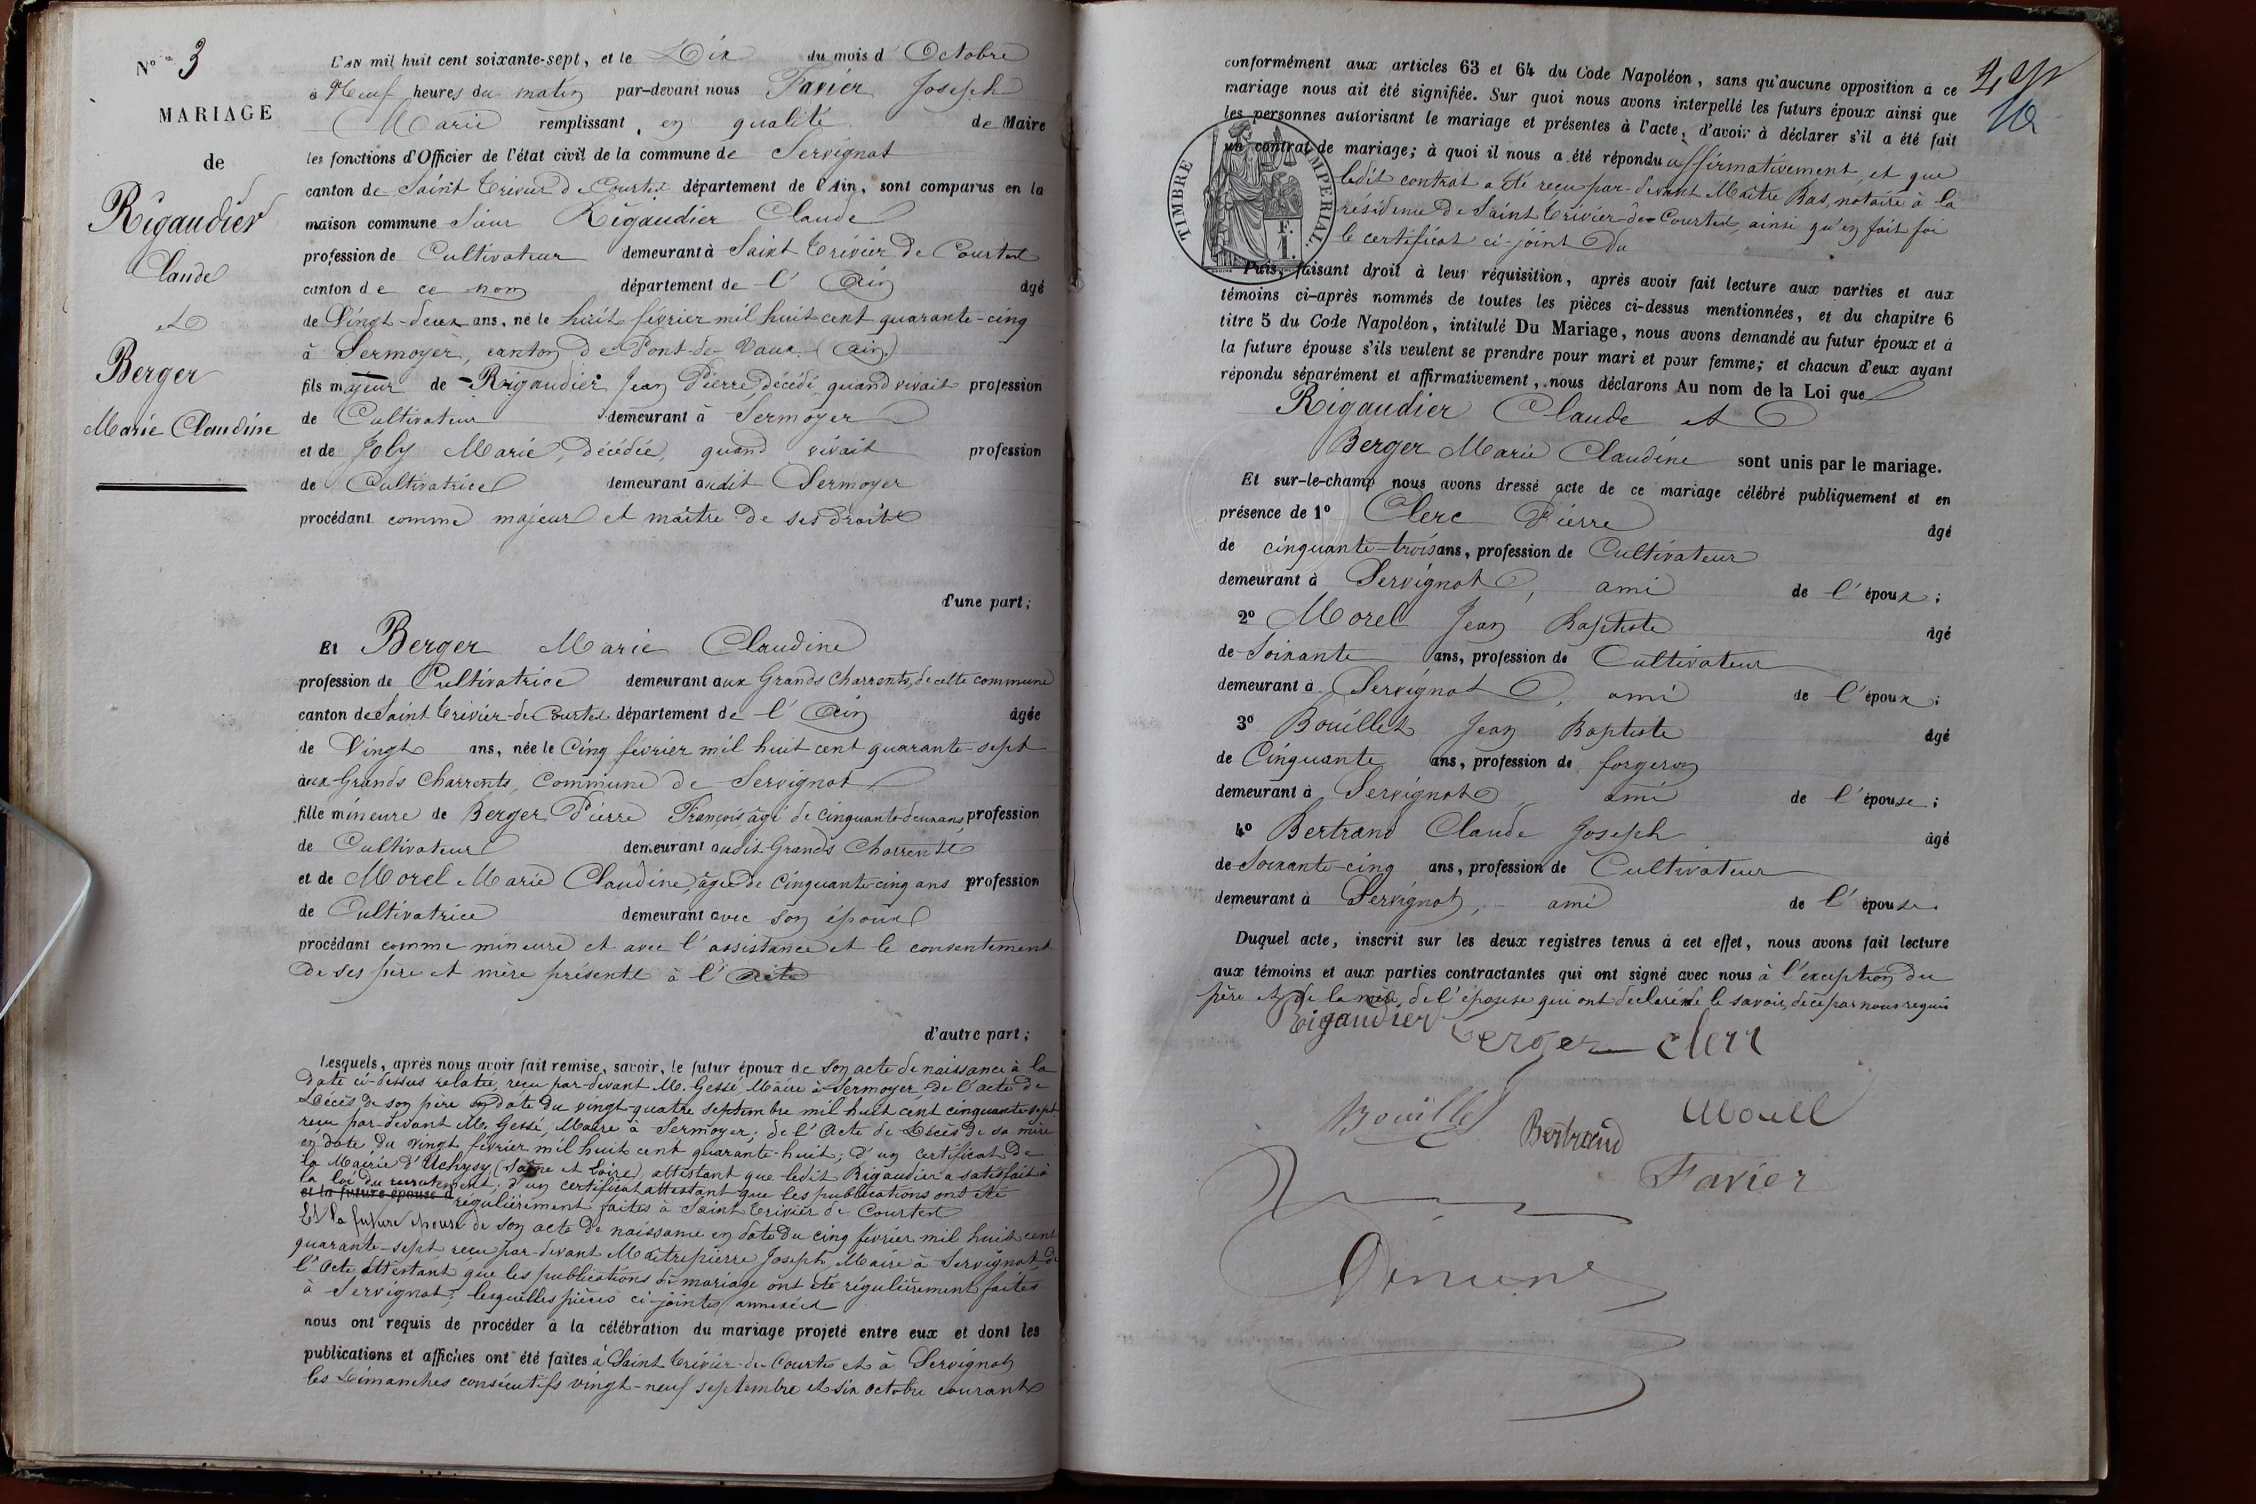 N° 3
MARIAGE
de
Rigaudier
Claude
et
Berger
Marie Claudine
L'an mil huit cent soixante-sept, et le Dix du mois d'Octobre
à Neuf heures du matin par-devant nous Favier Joseph
Marie remplissant, en qualité de Maire
les fonctions d'Officier de l'état civil de la commune de Servignat
canton de Saint Trivier de Courtes département de l'Ain, sont comparus en la
maison commune Sieur Rigaudier Claude
profession de Cultivateur demeurant à Saint Trivier de Courtes
canton de ce nom département de l'Ain âgé
de Vingt-deux ans, né le huit février mil huit cent quarante-cinq
à Sermoyer, canton de Pont-de-Vaux (Ain)
fils majeur de Rigaudier Jean Pierre, décédé, quand vivait profession
de Cultivateur demeurant à Sermoyer
et de Joly Marie, décédée, quand vivait profession
de Cultivatrice demeurant audit Sermoyer
procédant comme majeur et maître de ses droits
d'une part;
Et Berger Marie Claudine
profession de Cultivatrice demeurant aux Grands Charrents, de cette commune
canton de Saint Trivier-de-Courtes département de l'Ain âgée
de Vingt ans, née le Cinq février mil huit cent quarante-sept
aux Grands Charrents, Commune de Servignat
fille mineure de Berger Pierre François, âgé de cinquante-deux ans, profession
de Cultivateur demeurant audit Grands Charrents
et de Morel Marie Claudine, âgée de Cinquante-cinq ans profession
de Cultivatrice demeurant avec son époux
procédant comme mineure et avec l'assistance et le consentement
de ses père et mère présents à l'Acte
d'autre part;
Lesquels, après nous avoir fait remise, savoir, le futur époux de son acte de naissance à la
date ci-dessus relatée, reçu par-devant M. Gessé Maire à Sermoyer, de l'acte de
Décès de son père en date du vingt-quatre septembre mil huit cent cinquante-sept
reçu par-devant Mr. Gessé, Maire à Sermoyer; de l'Acte de Décès de sa mère
en date du vingt février mil huit cent quarante-huit; d'un certificat de
la Mairie d'Uchysy (Saône et Loire) attestant que ledit Rigaudier a satisfait à
la loi du recrutement; d'un certificat attestant que les publications ont été
et la future épouse d régulièrement faites à Saint Trivier de Courtes
Et la future épouse de son acte de naissance en date du cinq février mil huit cent
quarante-sept reçu par-devant Maîtrepierre Joseph, Maire à Servignat, de
l'Acte attestant que les publications de mariage ont été régulièrement faites
à Servignat; lesquelles pièces ci-jointes annexées
nous ont requis de procéder à la célébration du mariage projeté entre eux et dont les
publications et affiches ont été faites à Saint Trivier-de-Courtes et à Servignat
les Dimanches consécutifs vingt-neuf septembre et six octobre courant
conformément aux articles 63 et 64 du Code Napoléon, sans qu'aucune opposition à ce
mariage nous ait été signifiée. Sur quoi nous avons interpellé les futurs époux ainsi que
les personnes autorisant le mariage et présentes à l'acte, d'avoir à déclarer s'il a été fait
un contrat de mariage; à quoi il nous a été répondu affirmativement, et que
ledit contrat a été reçu par-devant Maître Bas, notaire à la
résidence de Saint Trivier-de-Courtes, ainsi qu'en fait foi
le certificat ci-joint Du
TIMBRE IMPERIAL.
1 F.
Puis, faisant droit à leur réquisition, après avoir fait lecture aux parties et aux
témoins ci-après nommés de toutes les pièces ci-dessus mentionnées, et du chapitre 6
titre 5 du Code Napoléon, intitulé Du Mariage, nous avons demandé au futur époux et à
la future épouse s'ils veulent se prendre pour mari et pour femme; et chacun d'eux ayant
répondu séparément et affirmativement, nous déclarons Au nom de la Loi que
Rigaudier Claude et
Berger Marie Claudine sont unis par le mariage.
Et sur-le-champ nous avons dressé acte de ce mariage célébré publiquement et en
présence de 1° Clerc Pierre âgé
de cinquante-trois ans, profession de Cultivateur
demeurant à Servignat, ami de l'époux;
2° Morel Jean Baptiste âgé
de Soixante ans, profession de Cultivateur
demeurant à Servignat, ami de l'époux;
3° Bouillet Jean Baptiste âgé
de Cinquante ans, profession de forgeron
demeurant à Servignat ami de l'épouse;
4° Bertrand Claude Joseph âgé
de Soixante-cinq ans, profession de Cultivateur
demeurant à Servignat, ami de l'épouse.
Duquel acte, inscrit sur les deux registres tenus à cet effet, nous avons fait lecture
aux témoins et aux parties contractantes qui ont signé avec nous à l'exception du
père et de la mère de l'épouse qui ont déclaré ne le savoir, de ce par nous requis
Rigaudier Berger Clerc
Bouillet Bertrand Morel
Favier